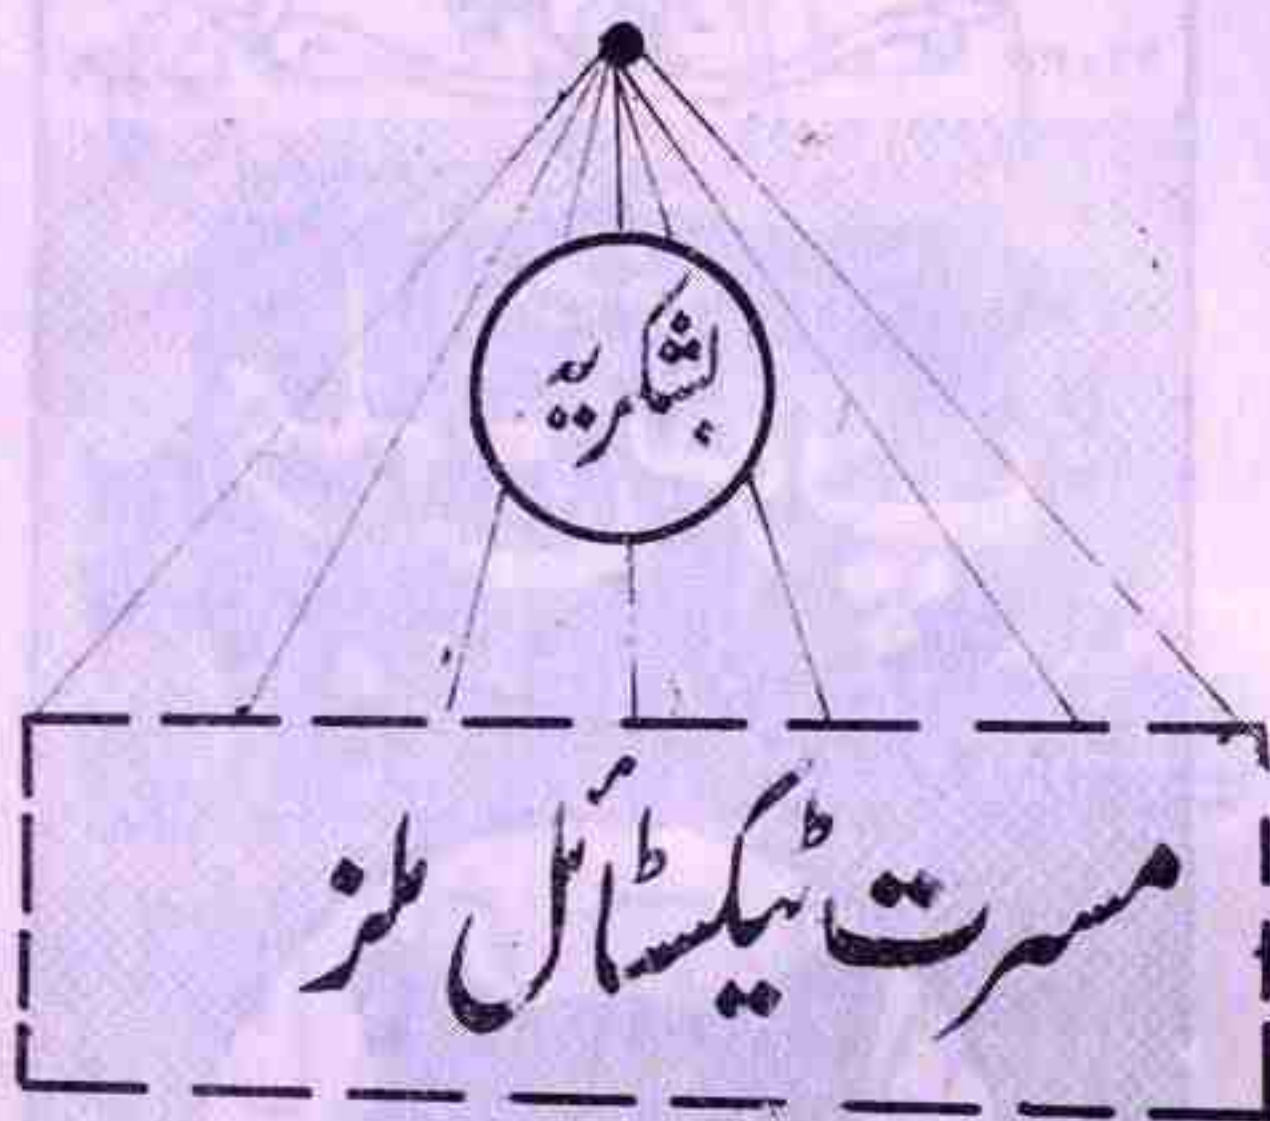 بشکریہ
مسرت ٹیکسٹائل ملز